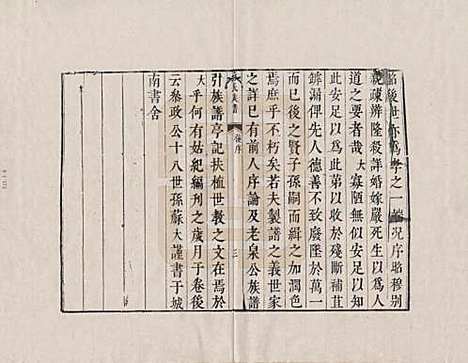 貽後世亦為孝之一端況序昭穆別
親疎辨隆殺詳婚嫁嚴死生以為人
道之要者哉大寡陋無似安足以知
此安足以為此第以收於殘斷補苴
罅漏俾先人德善不致廢墜於萬一
而已後之賢子孫嗣而緝之加潤色
焉庶乎不朽矣若夫製譜之義世家
之詳已有前人序論及老泉公族譜
引族譜亭記扶植世教之文在焉於
大乎何有姑紀編刊之歲月于卷後
云參政公十八世孫蘇大謹書于城
南書舍
後序
三